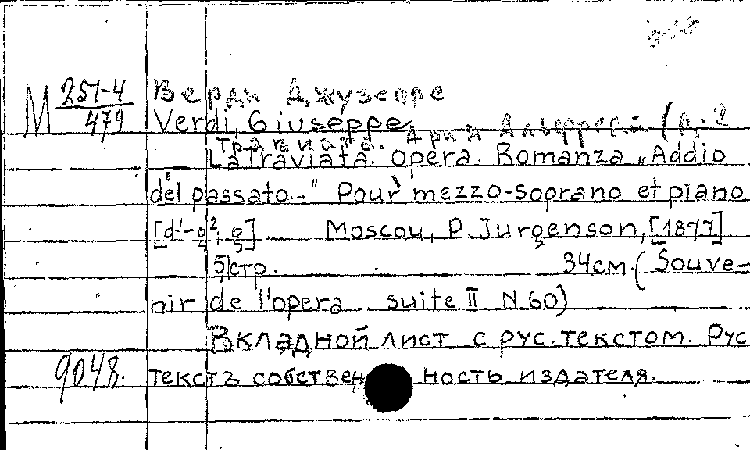 М 251-4
479
Верди Джузеппе
Verdi, Giuseppe
Травиата. Ария
La Traviata. Opera. Romanza „Addio
del passato.." Pour mezzo-soprano et piano
Moscou, P. Jurgenson, [1877]
5 стр. 34 см. (Souve-
nir de l'opera suite II N 60)
Вкладной лист с рус. текстом. Рус
9048. текстъ собственность издателя.